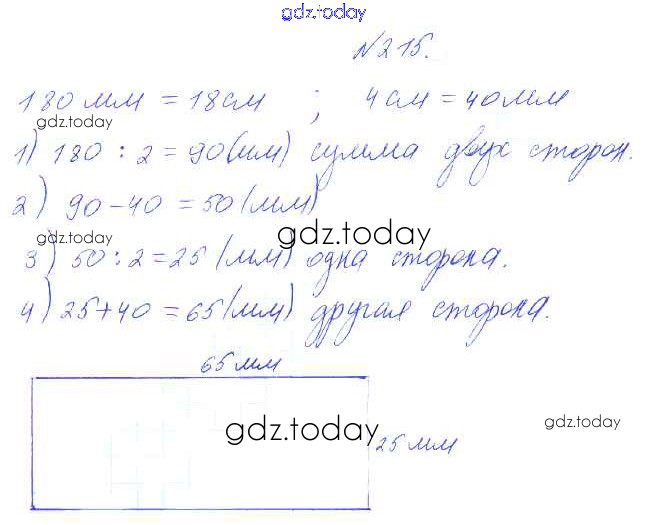 gdz.today
№215.
180 мм = 18 см ; 4 см = 40 мм
gdz.today
1) 180 : 2 = 90 (мм) сумма двух сторон.
2) 90 - 40 = 50 (мм)
gdz.today
3) 50 : 2 = 25 (мм) одна сторона.
4) 25 + 40 = 65 (мм) другая сторона.
gdz.today
65 мм
gdz.today
gdz.today
25 мм